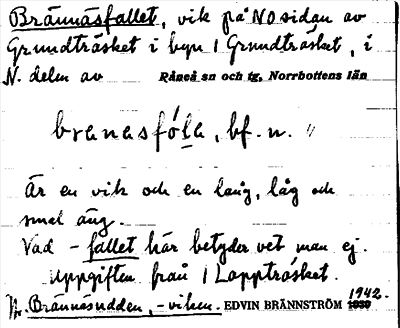 Brännäsfallet, vik på NO sidan av
Grundträsket i byn 1 Grundträsket, i
N. delen av Råneå sn och tg, Norrbottens län
branasfóla, bf. n. "
Är en vik och en lång, låg och
smal äng.
Vad -fallet här betyder vet man ej.
Uppgiften från 1 Lappträsket.
Brännäsudden, -viken. EDVIN BRÄNNSTRÖM 1942.